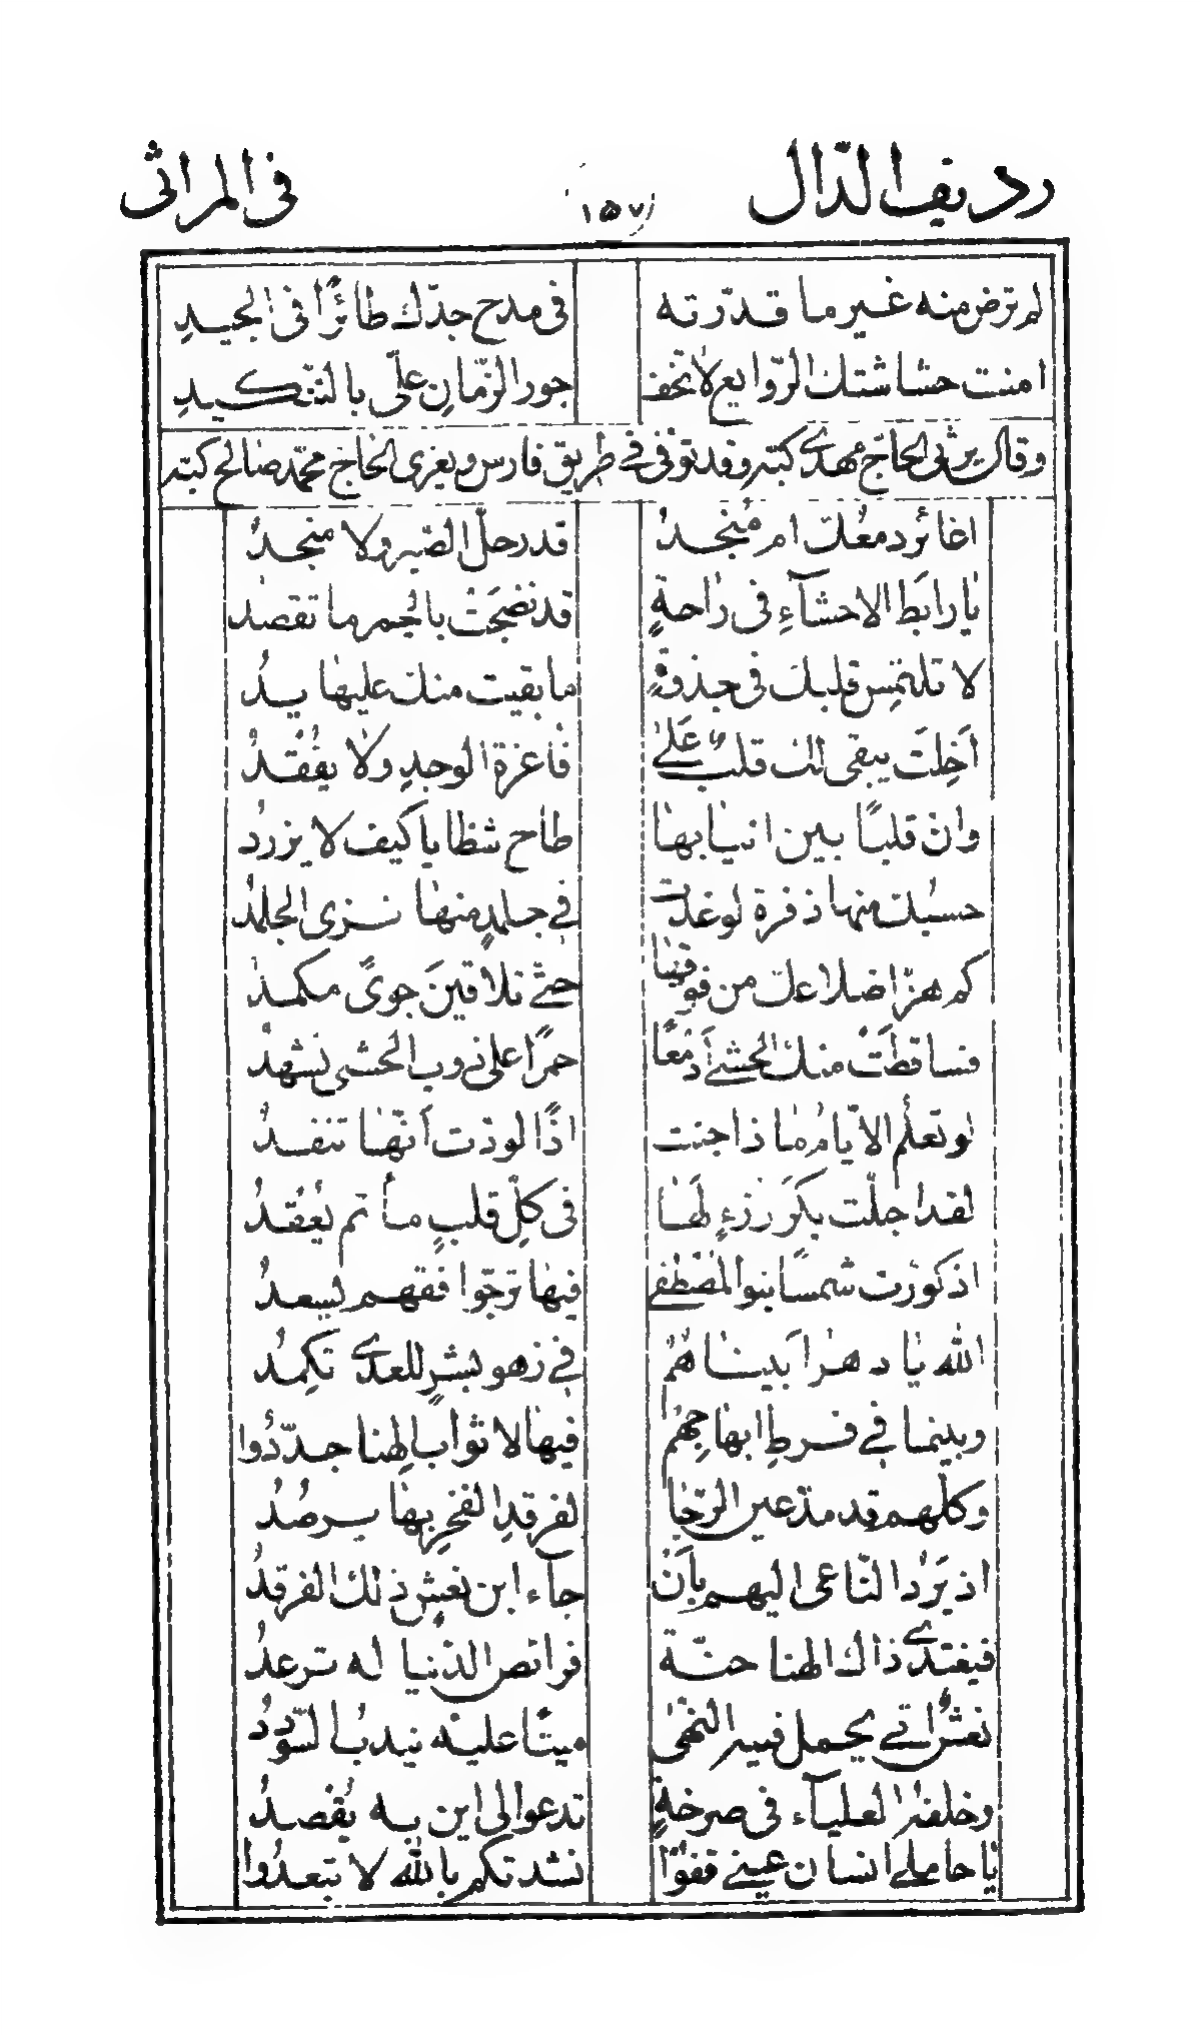 رديف الدّال ١٥٧ فى المراثى
لم ترض منه غير ما قدّرته فى مدح جدّك طائرًا فى الجيدِ
امنت حشاشتك الرّوايع لا تخف جور الزّمانِ علَى بالتّنكيدِ
وقال يرثى الحاجّ مهدى كبّه وقد توفى فى طريق فارس ويعزى الحاج محمّد صالح كبّه
اغائرُ دمعُك ام مُنجدُ قد رحل الصّبر ولا منجدُ
يا رابَط الاحشآءِ فى راحةٍ قد نضجَتْ بالجمر ما تقصد
لا تلتمِس قلبك فى جذوةٍ ما بقيت منك عليها يدُ
اَخِلتَ يبقى لك قلبٌ عَلىٰ فاغرة الوجدِ ولا يفُقدُ
وانّ قلبًا بين انيابها طاح شظايا كيف لا يزردُ
حسبُك منها زفرة لو غدت فى جلمدٍ منها نزى الجلمدُ
كم هزّ اضلاعك من فوقها حتّى تلاقينَ جوىً مكمدُ
فساقطَتْ منك الحشى اَدمُعًا حمرًا على ذوب الحشى تشهدُ
لو تعلم الايّامُ ماذا جنت اذًا لودّت اَنّها تنفدُ
لقد اجلّت بكرَ رزءٍ لَها فى كلّ قلبٍ مأتم يُعقدُ
اذ كوّرت شمسًا بنو المصْطفى فيها ترجّوا فقهم يسعدُ
الله يا دهرا بيناهُمُ فى زهو بشرٍ للعدى تكمِدُ
وبينما فى فرطِ ابهاجِهُم فيها لاثوابِ الهنا جدّدُوا
وكلّهم قد مدّ عين الرّجا لفرقدِ الفخرِ بها يرصُدُ
اذ يَردُ النّاعى اليهم بأَنْ جآء ابن نعشٍ ذلك الفرقدُ
فيغتدى ذاك الهنا حنّة فرائص الدّنيا له ترعدُ
نعشٌ اتى يحمل فيه النهٰى ميتًا عليه يندبُ السّوددُ
وخلفه العليآء فى صرخةٍ تدعوا لى اين به يُقصدُ
يا حاملى انسان عينى قفوا نشدتكم بالله لا تبعدُوا